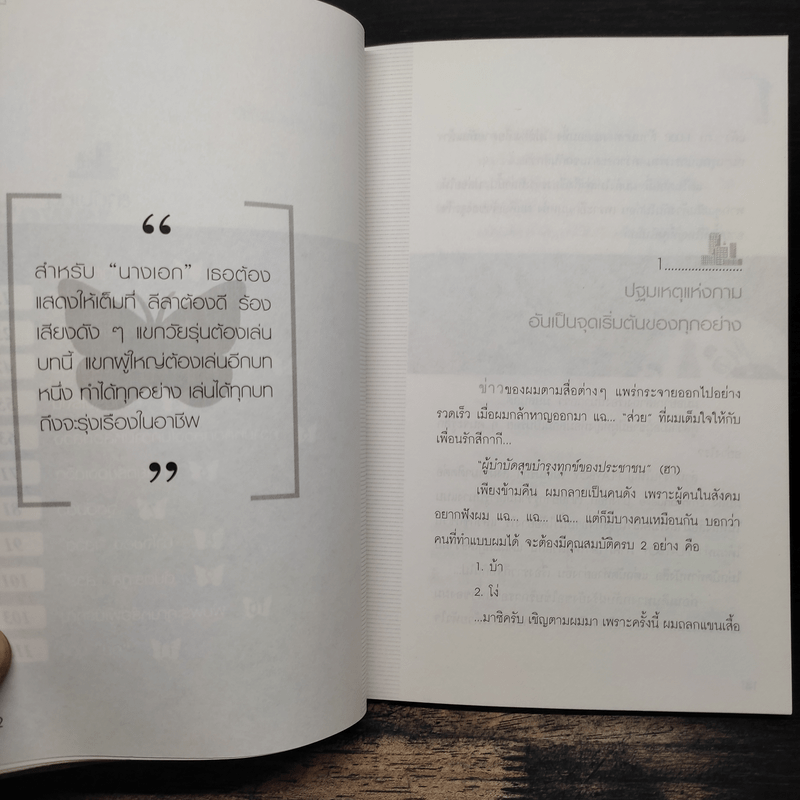 “
สำหรับ “นางเอก” เธอต้อง
แสดงให้เต็มที่ ลีลาต้องดี ร้อง
เสียงดัง ๆ แขกวัยรุ่นต้องเล่น
บทนี้ แขกผู้ใหญ่ต้องเล่นอีกบท
หนึ่ง ทำได้ทุกอย่าง เล่นได้ทุกบท
ถึงจะรุ่งเรืองในอาชีพ
”
2
1.......................
ปฐมเหตุแห่งกาม
อันเป็นจุดเริ่มต้นของทุกอย่าง
ข่าวของผมตามสื่อต่างๆ แพร่กระจายออกไปอย่าง
รวดเร็ว เมื่อผมกล้าหาญออกมา แฉ... “ส่วย” ที่ผมเต็มใจให้กับ
เพื่อนรักสีกากี...
“ผู้บำบัดสุขบำรุงทุกข์ของประชาชน” (ฮา)
เพียงข้ามคืน ผมกลายเป็นคนดัง เพราะผู้คนในสังคม
อยากฟังผม แฉ... แฉ... แฉ... แต่ก็มีบางคนเหมือนกัน บอกว่า
คนที่ทำแบบผมได้ จะต้องมีคุณสมบัติครบ 2 อย่าง คือ
1. บ้า
2. โง่
...มาซิครับ เชิญตามผมมา เพราะครั้งนี้ ผมถลกแขนเสื้อ